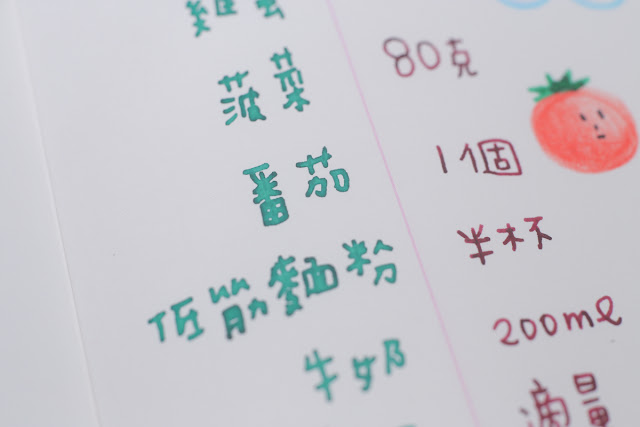 菠菜 80克
番茄 1個
低筋麵粉 半杯
牛奶 200ml
滴量